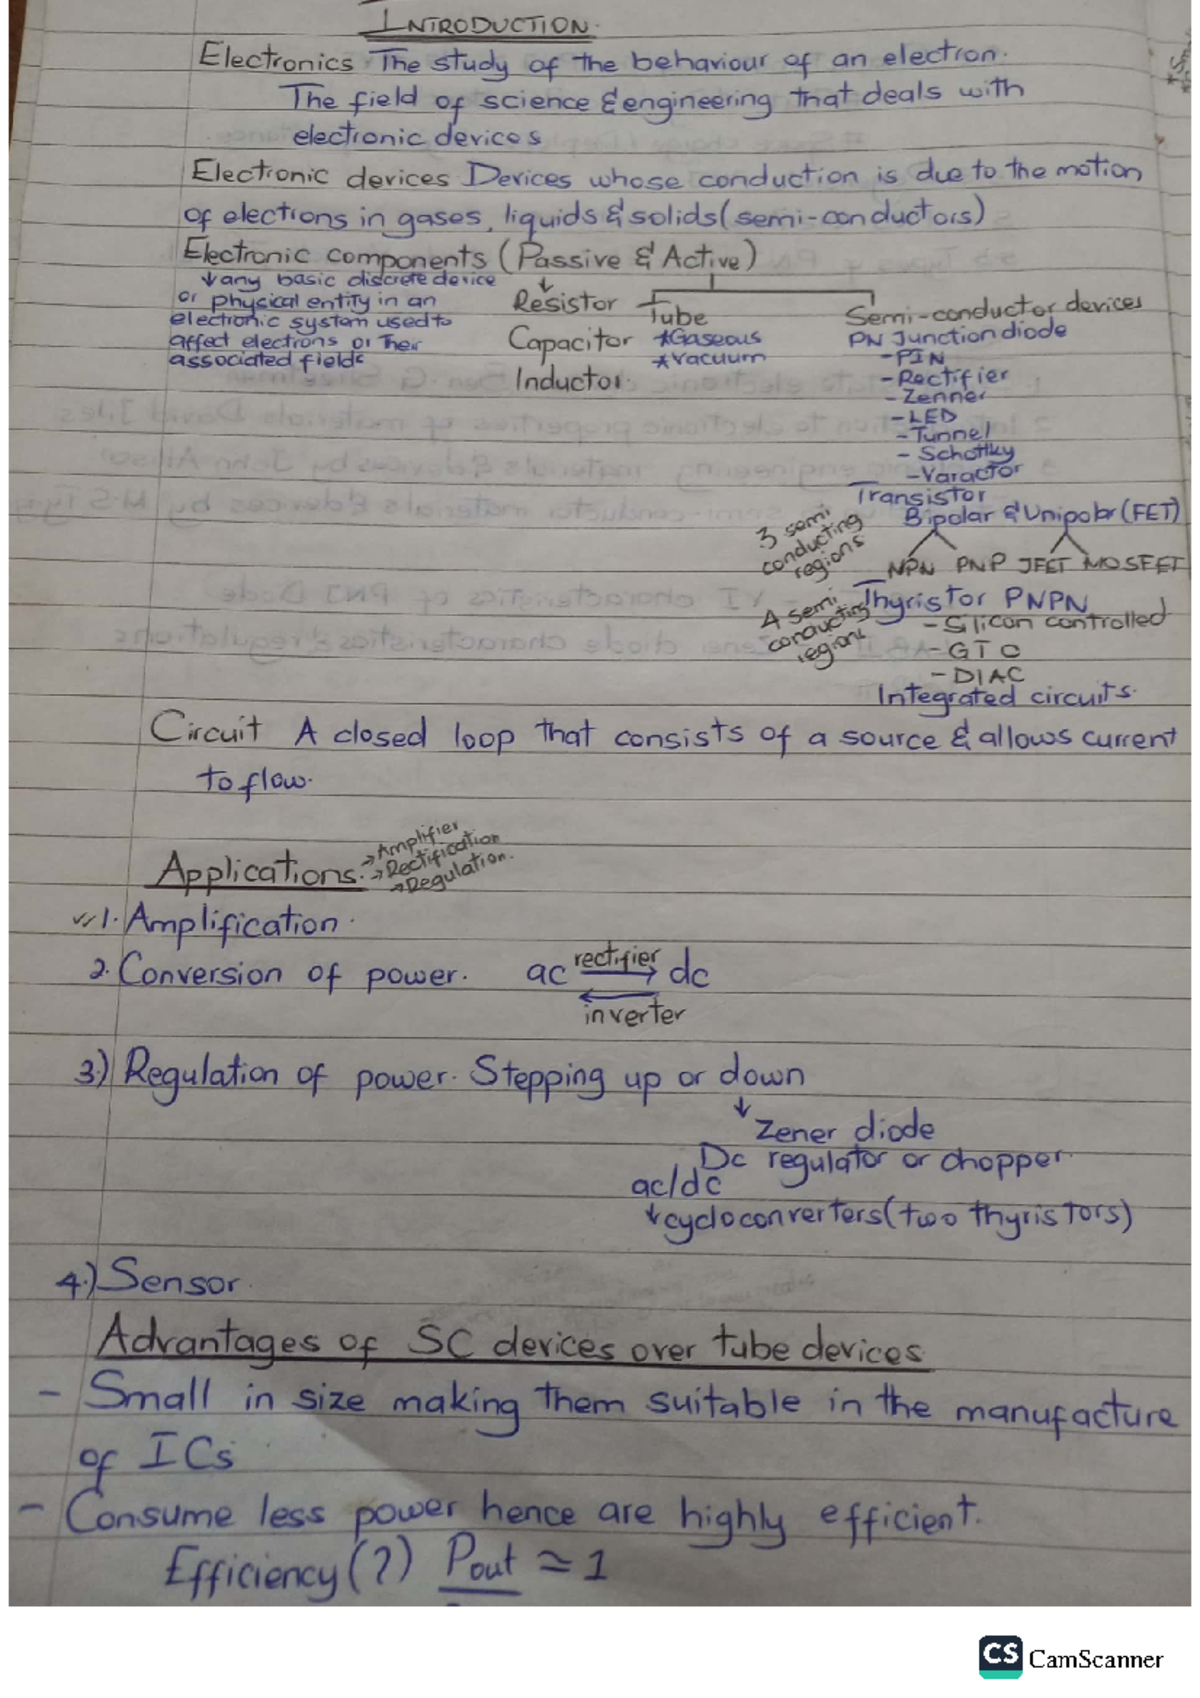 INTRODUCTION.
Electronics The study of the behaviour of an electron.
The field of science & engineering that deals with
electronic devices
Electronic devices Devices whose conduction is due to the motion
of electrons in gases, liquids & solids (semi-conductors)
Electronic components (Passive & Active)
↓ any basic discrete device
or physical entity in an
electronic system used to
affect electrons or their
associated fields
↓
Resistor
Capacitor
Inductor.
Tube
*Gaseous
*Vacuum
Semi-conductor devices
PN Junction diode
-PIN
-Rectifier
-Zenner
-LED
-Tunnel
-Schottky
-Varactor
Transistor
Bipolar & Unipolar (FET)
3 semi
conducting
regions
NPN PNP JFET MOSFET
Thyristor PNPN
4 semi
conducting
regions
-Silicon controlled
-GTO
-DIAC
Integrated circuits.
Circuit A closed loop that consists of a source & allows current
to flow.
Applications.
→Amplifier
→Rectification
→Regulation.
1. Amplification.
2. Conversion of power. ac rectifier → dc
← inverter
3) Regulation of power. Stepping up or down
↓ Zener diode
Dc regulator or chopper.
ac/dc
↓ cycloconverters (two thyristors)
4.) Sensor.
Advantages of SC devices over tube devices
- Small in size making them suitable in the manufacture
of ICs
- Consume less power hence are highly efficient.
Efficiency (?) Pout ≃ 1
CS CamScanner